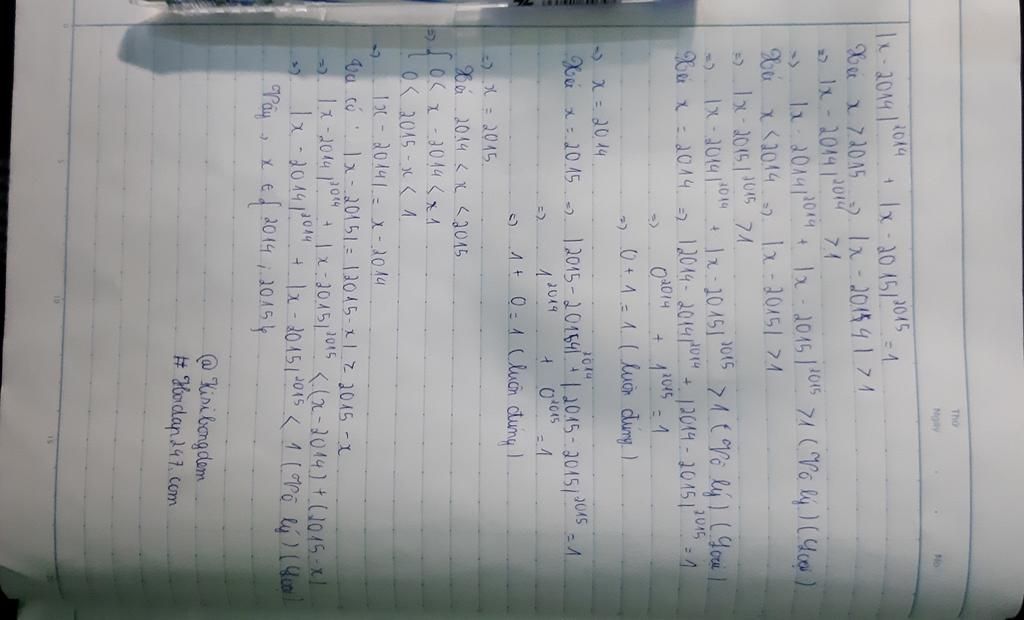 Thứ
Ngày . . No.
|x - 2014|²⁰¹⁴ + |x - 2015|²⁰¹⁵ = 1
Xét x > 2015 => |x - 2014| > 1
=> |x - 2014|²⁰¹⁴ > 1
=> |x - 2014|²⁰¹⁴ + |x - 2015|²⁰¹⁵ > 1 (Vô lý) (Loại)
Xét x < 2014 => |x - 2015| > 1
=> |x - 2015|²⁰¹⁵ > 1
=> |x - 2014|²⁰¹⁴ + |x - 2015|²⁰¹⁵ > 1 (Vô lý) (Loại)
Xét x = 2014 => |2014 - 2014|²⁰¹⁴ + |2014 - 2015|²⁰¹⁵ = 1
=> 0²⁰¹⁴ + 1²⁰¹⁵ = 1
=> 0 + 1 = 1 (luôn đúng)
=> x = 2014
Xét x = 2015 => |2015 - 2014|²⁰¹⁴ + |2015 - 2015|²⁰¹⁵ = 1
=> 1²⁰¹⁴ + 0²⁰¹⁵ = 1
=> 1 + 0 = 1 (luôn đúng)
=> x = 2015
Xét 2014 < x < 2015
=> { 0 < x - 2014 < 1
0 < 2015 - x < 1
=> |x - 2014| = x - 2014
Ta có : |x - 2015| = |2015 - x| = 2015 - x
=> |x - 2014|²⁰¹⁴ + |x - 2015|²⁰¹⁵ < (x - 2014) + (2015 - x)
=> |x - 2014|²⁰¹⁴ + |x - 2015|²⁰¹⁵ < 1 (Vô lý) (Loại)
Vậy, x ∈ { 2014 ; 2015 }
@Kisibongdem
# Hoidap247.com